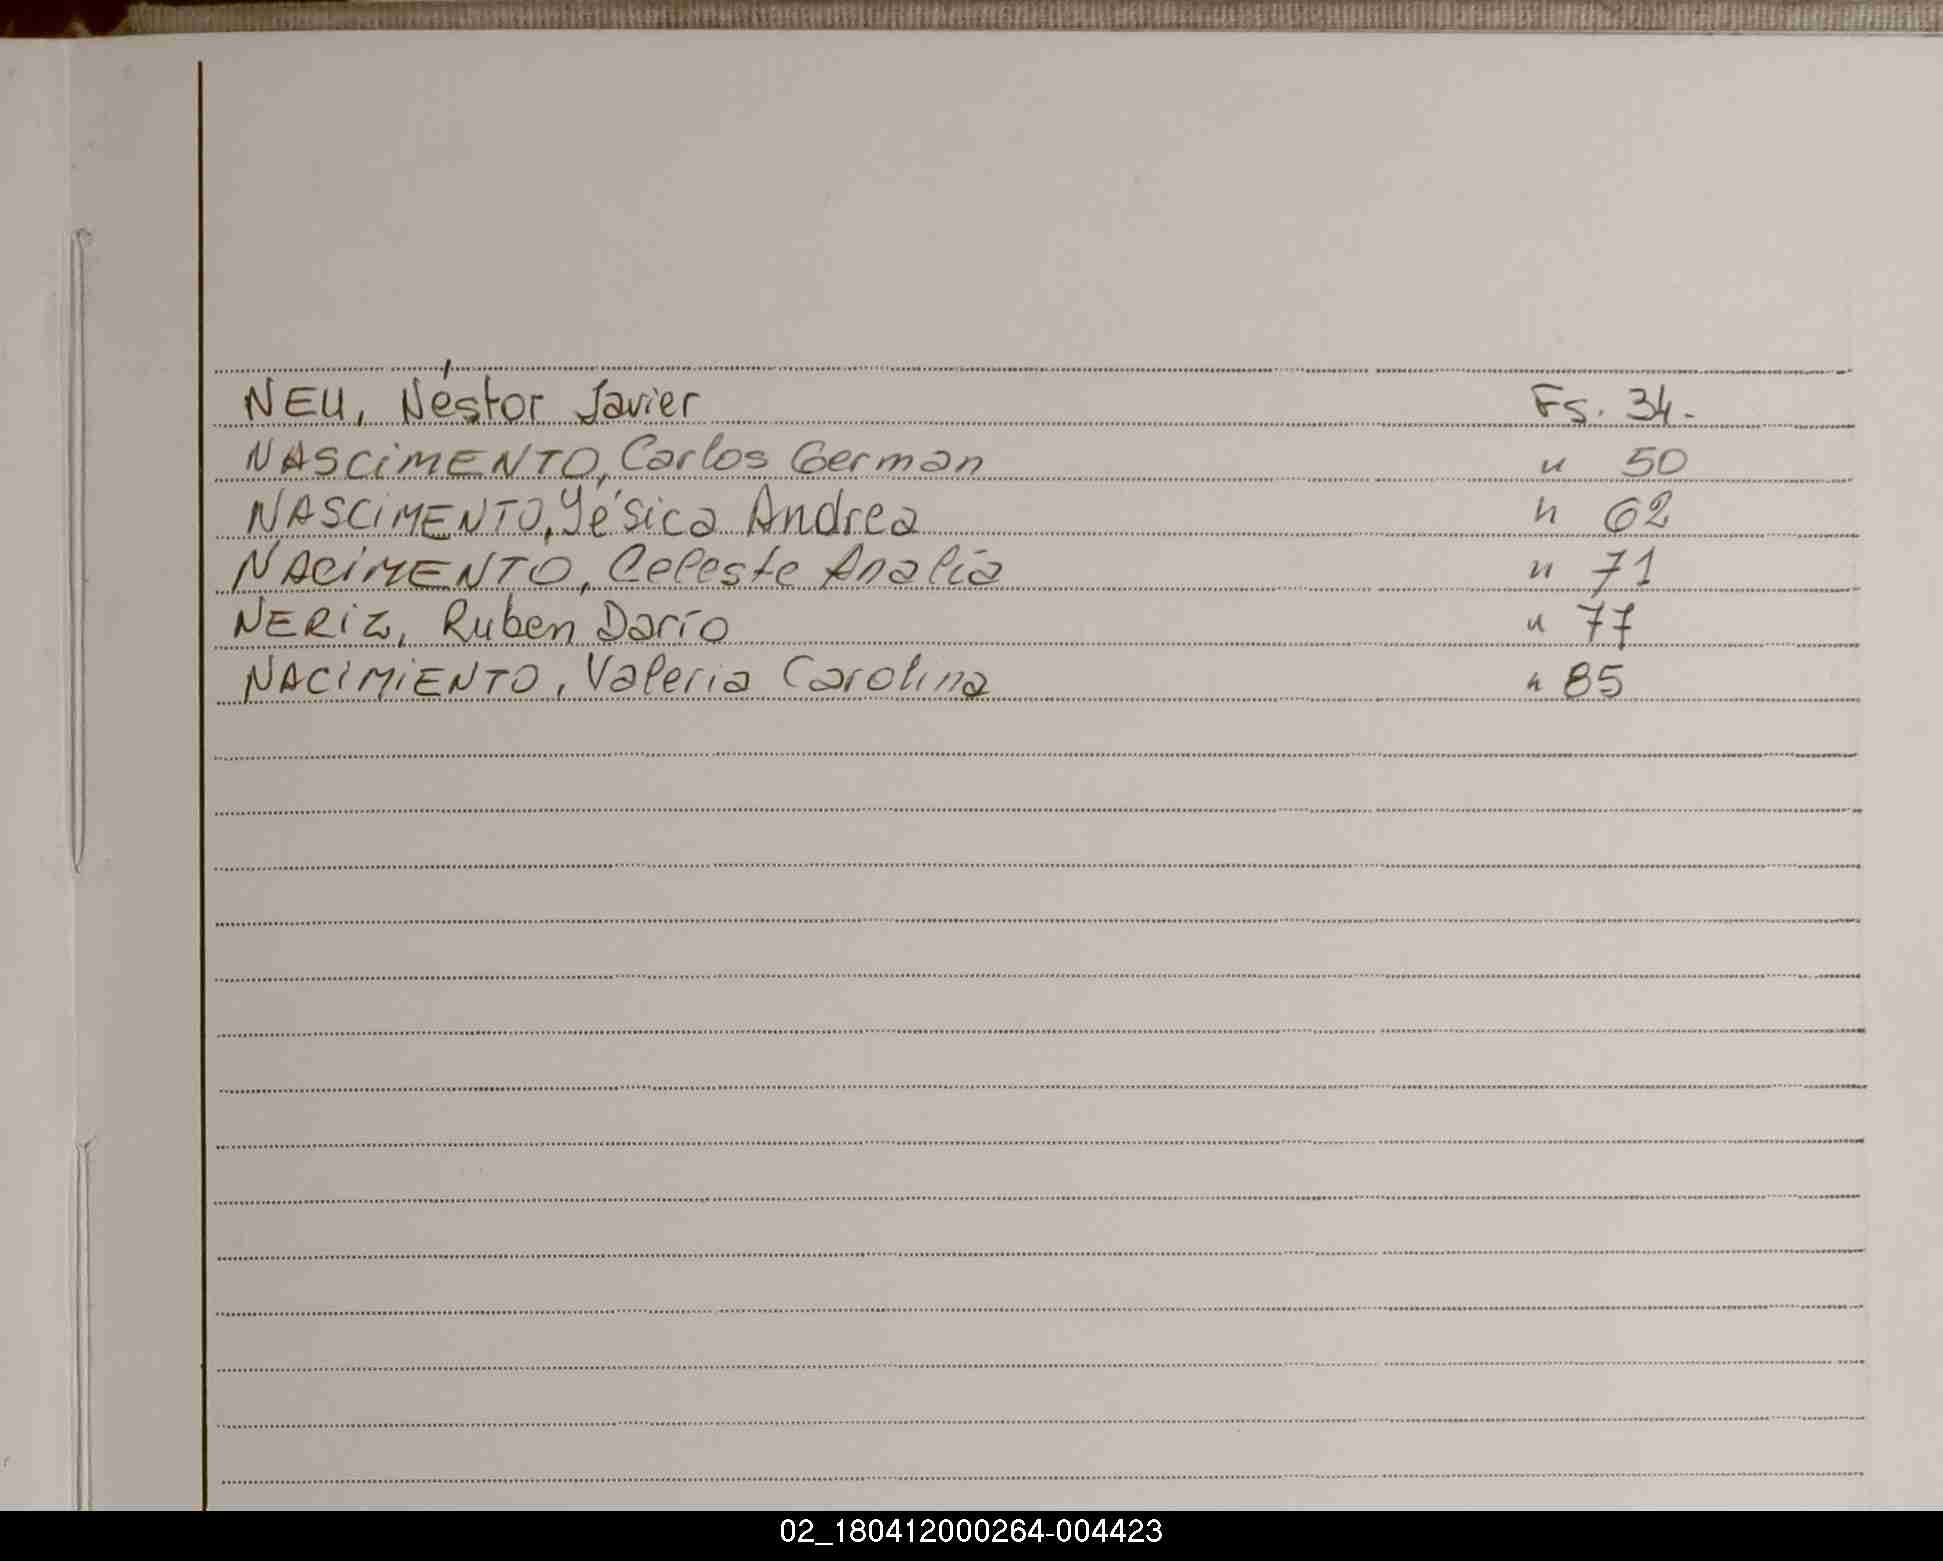 NEU, Néstor Javier Fs. 34.
NASCiMENTO, Carlos German " 50
NASCiMENTO, Yésica Andrea " 62
NACiMENTO, Celeste Analía " 71
NERiZ, Ruben Darío " 77
NACiMiENTO, Valeria Carolina " 85
02_180412000264-004423